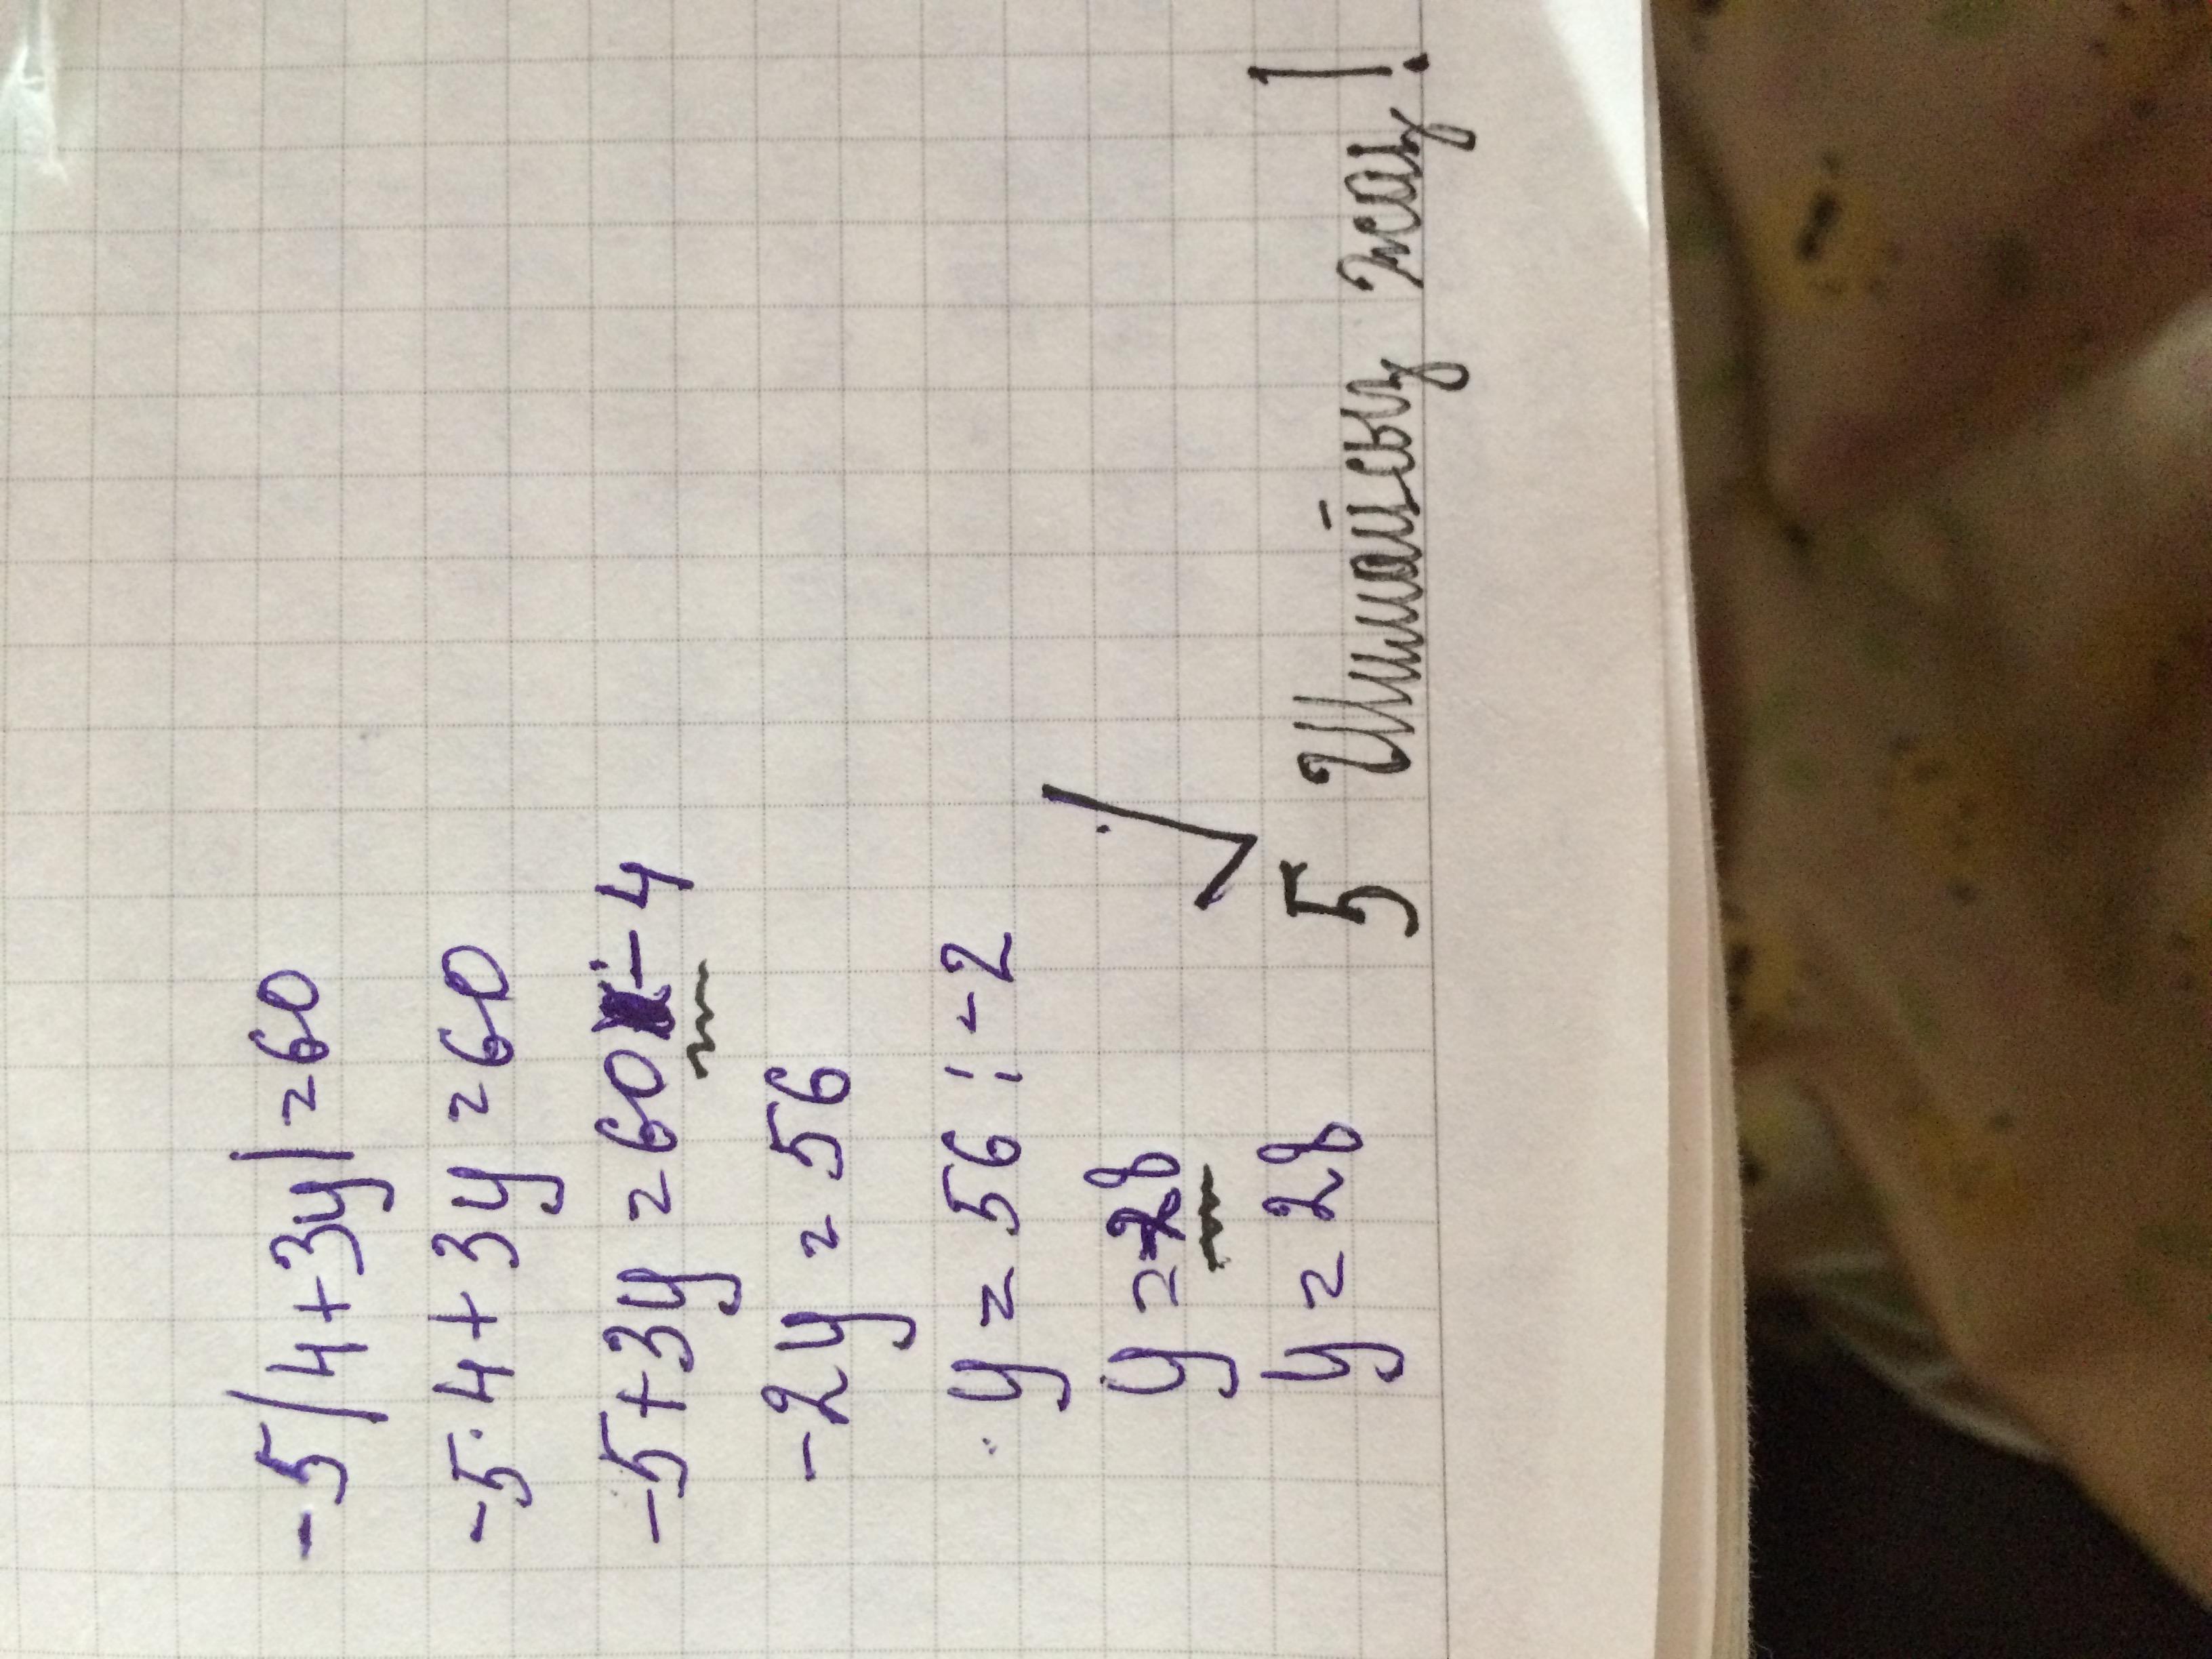 -5(4+3y)=60
-5·4+3y=60
-5+3y=60÷4
-2y=56
y=56:-2
y=-28
y=28
5 Шимайсыз жаз!